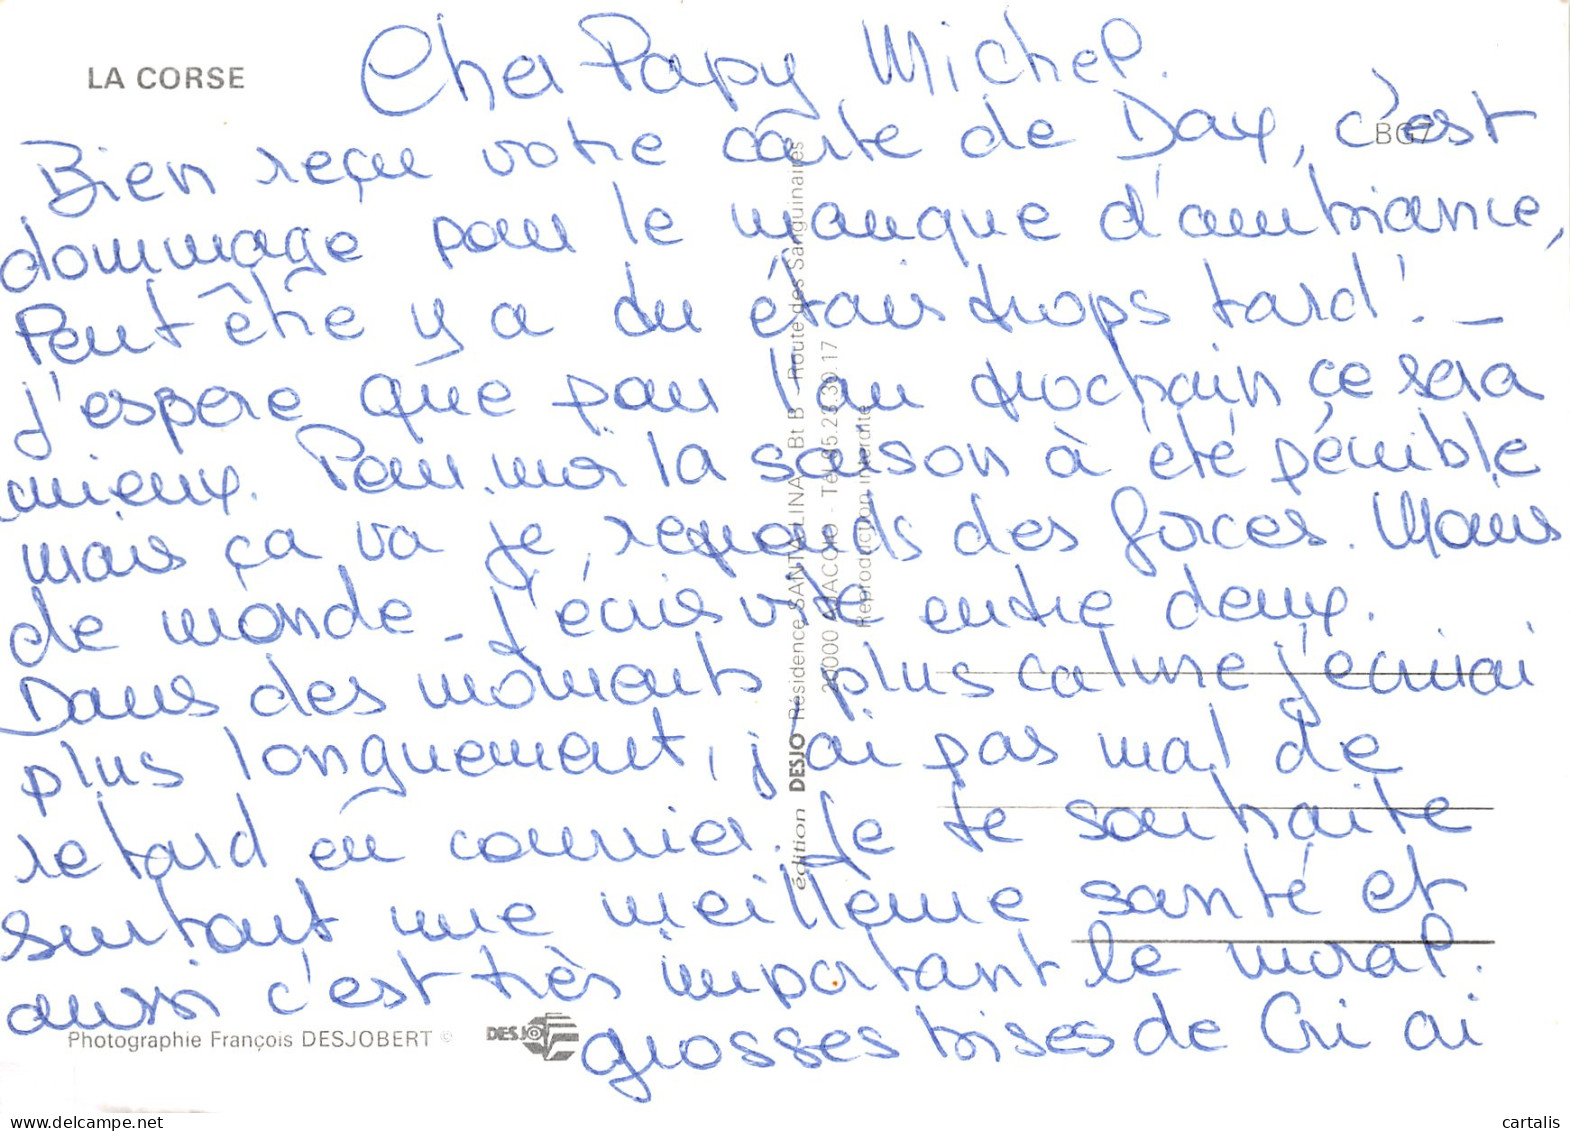 LA CORSE
Cher Papy Michel.
BG7
Bien reçu votre carte de Dax, c'est
dommage pour le manque d'ambiance,
Peut être y a du étais trops tard! _
j'espere que pour l'an prochain ce sera
mieux. Pour moi la saison à été pénible
mais ça va je reprends des forces. Moins
de monde _ j'écris vite entre deux.
Dans des moments plus calme j'écrirai
plus longuement, j'ai pas mal de
retard en courrier. Je te souhaite
surtout une meilleure santé et
aussi c'est très important le moral.
grosses bises de Cri ai
édition DESJO Résidence SANTA LINA Bt B - Route des Sanguinaires
20000 AJACCIO - Tel 95.23.30.17
Reproduction interdite
Photographie François DESJOBERT ©
DESJO
cartalis